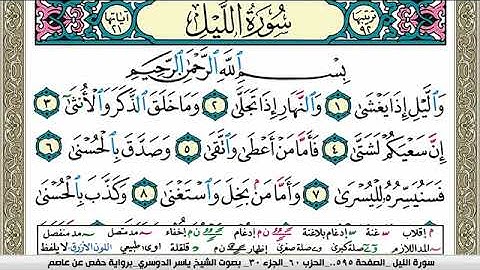 ترتيبها ٩٢
سُورَةُ اللَّيْلِ
آياتها ٢١
بِسْمِ ٱللَّهِ ٱلرَّحْمَٰنِ ٱلرَّحِيمِ
وَٱلَّيْلِ إِذَا يَغْشَىٰ ١ وَٱلنَّهَارِ إِذَا تَجَلَّىٰ ٢ وَمَا خَلَقَ ٱلذَّكَرَ وَٱلْأُنثَىٰٓ ٣
إِنَّ سَعْيَكُمْ لَشَتَّىٰ ٤ فَأَمَّا مَنْ أَعْطَىٰ وَٱتَّقَىٰ ٥ وَصَدَّقَ بِٱلْحُسْنَىٰ ٦
فَسَنُيَسِّرُهُۥ لِلْيُسْرَىٰ ٧ وَأَمَّا مَنۢ بَخِلَ وَٱسْتَغْنَىٰ ٨ وَكَذَّبَ بِٱلْحُسْنَىٰ
م إقلاب غنة إدغام بلاغنة إدغام إخفاء مد متصل مد منفصل
المد اللازم صلة كبرى وصلة صغرى إظهار قلقلة اوى طبيعي النون الأزرق لا يلفظ
سورة الليل _الصفحة ٥٩٥..الحزب ٦٠_الجزء ٣٠_ بصوت الشيخ ياسر الدوسري_برواية حفص عن عاصم